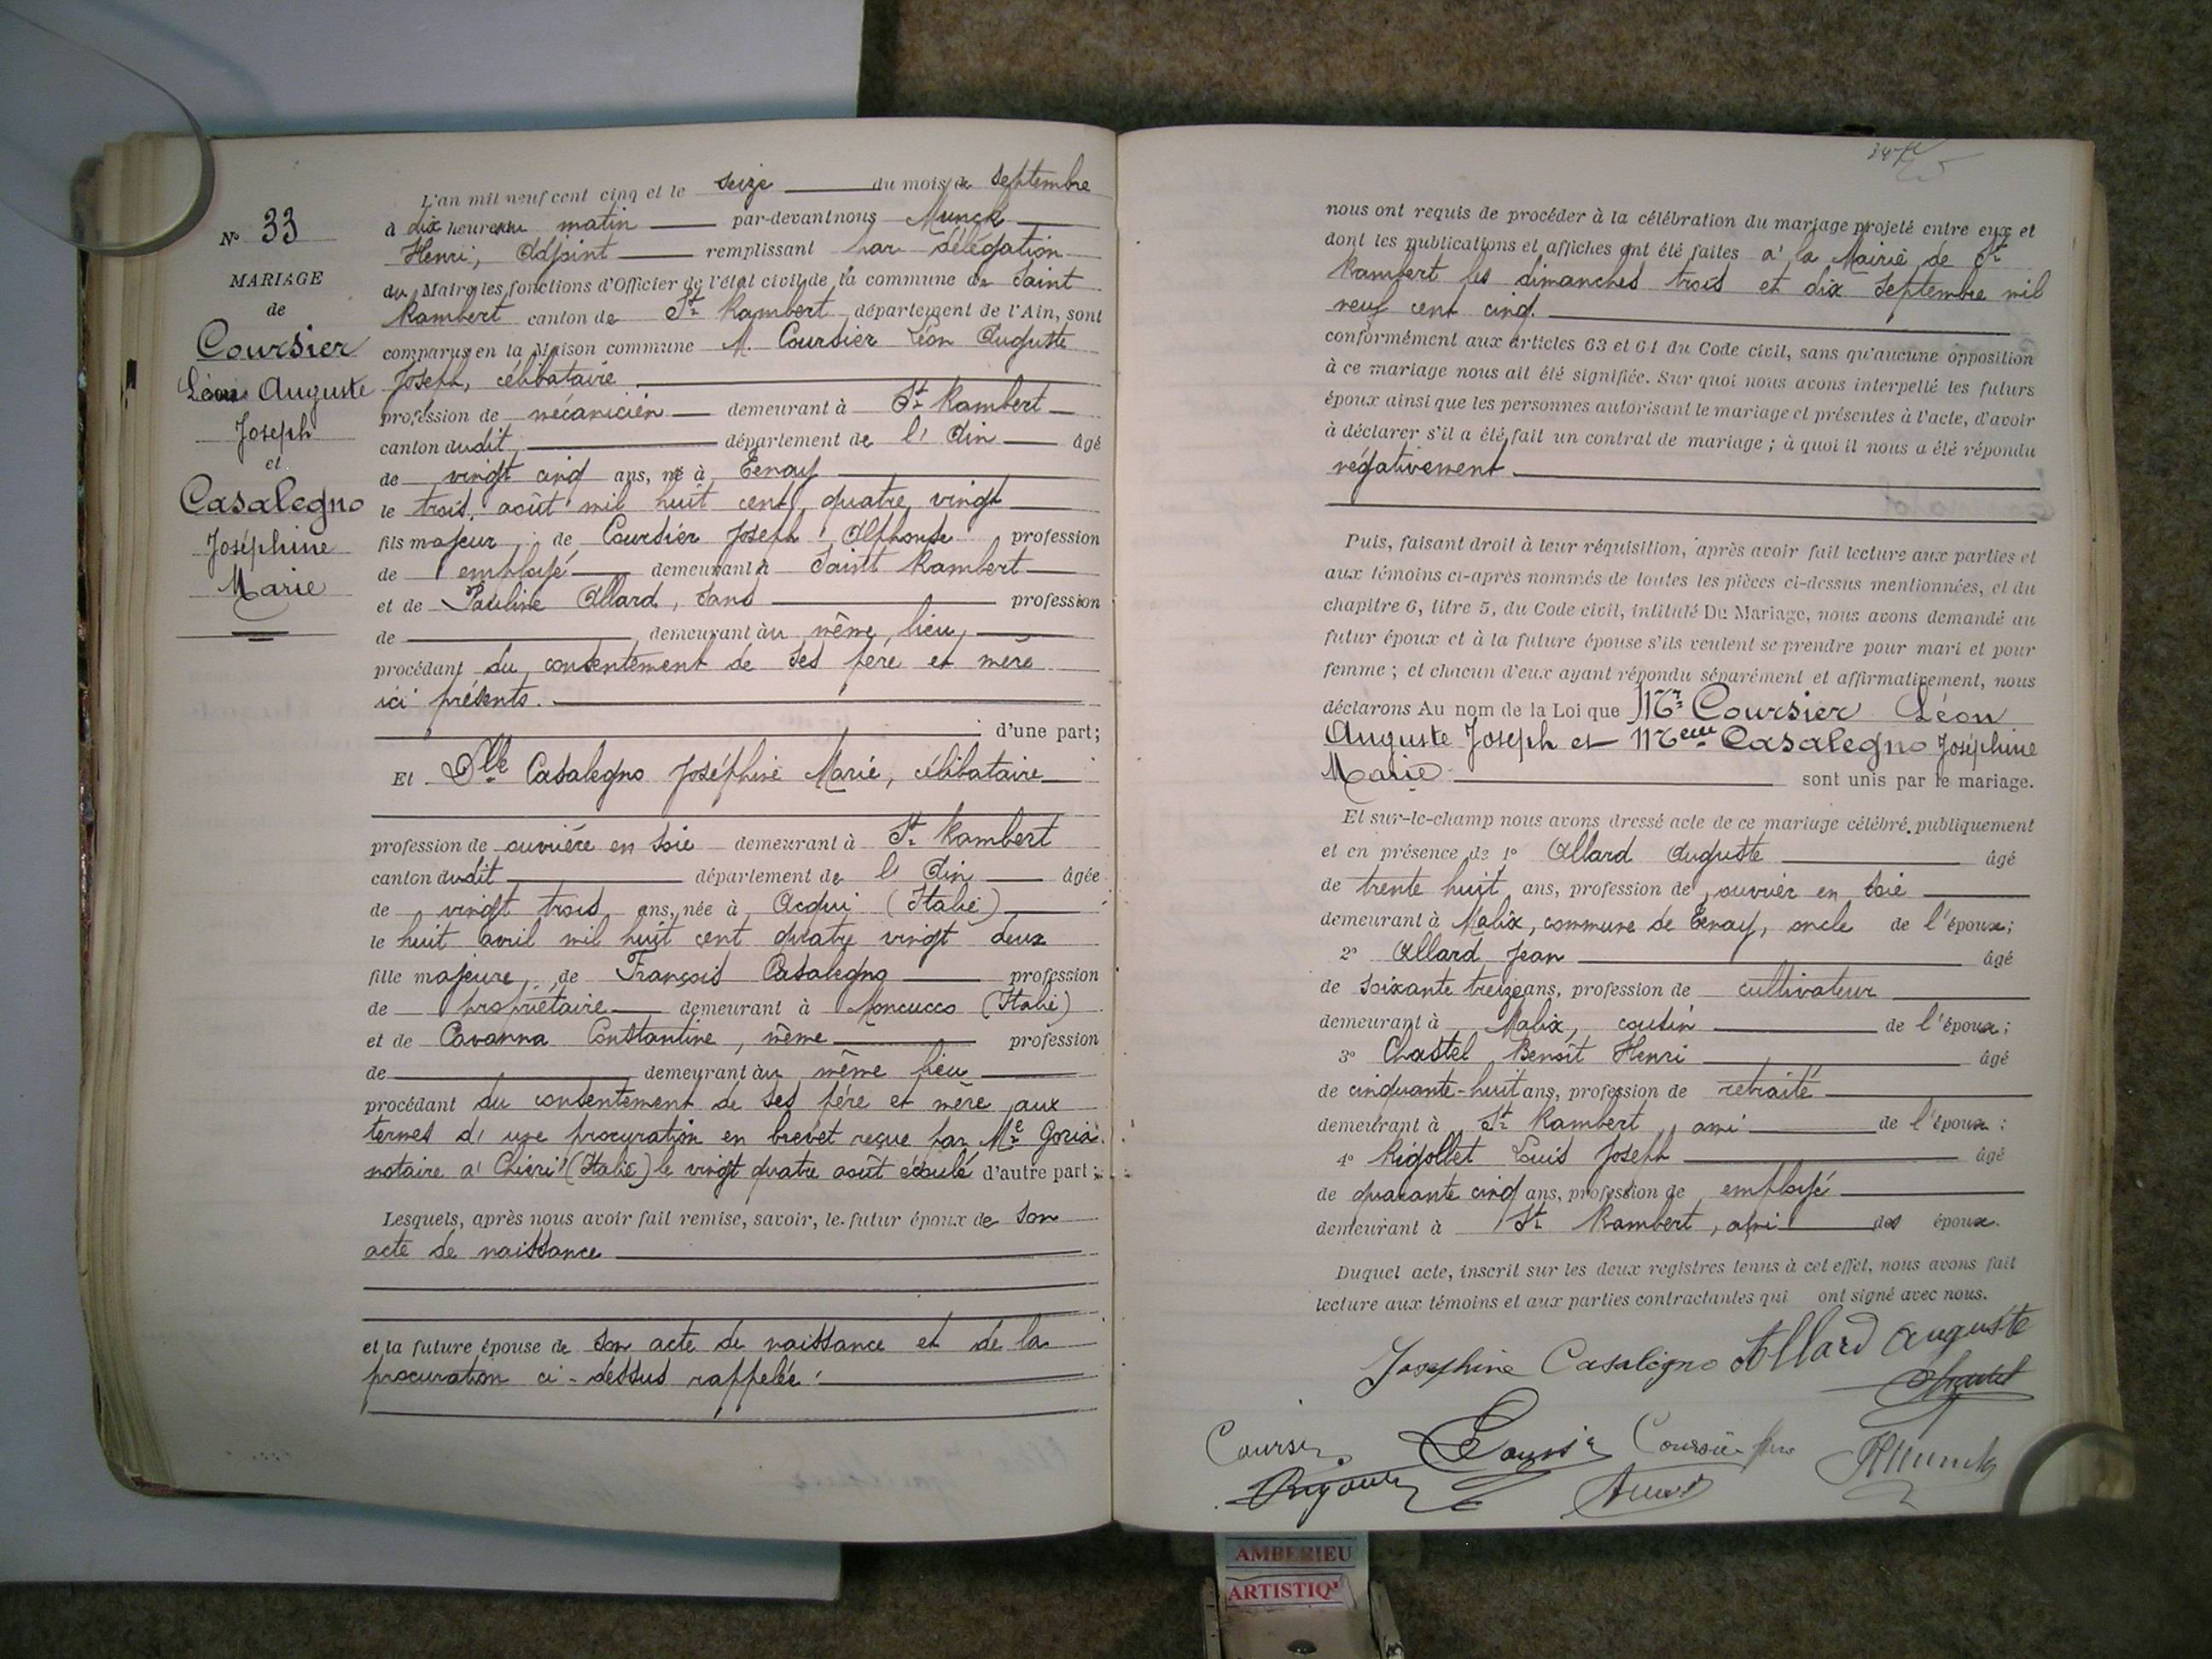 N° 33
MARIAGE
de
Coursier
Léon Auguste
Joseph
et
Casalegno
Joséphine
Marie
L'an mil neuf cent cinq et le seize du mois de septembre
à dix heures du matin par-devant nous Munck
Henri, Adjoint remplissant par délégation
du Maire les fonctions d'Officier de l'état civil de la commune de Saint
Rambert canton de St Rambert, département de l'Ain, sont
comparus en la Maison commune M. Coursier Léon Auguste
Joseph, célibataire
profession de mécanicien demeurant à St Rambert
canton dudit département de l'Ain âgé
de vingt cinq ans, né à Tenay
le trois août mil huit cent quatre vingt
fils majeur de Coursier Joseph Alphonse profession
de employé demeurant à Saint Rambert
et de Pauline Allard, sans profession
de demeurant au même lieu,
procédant du consentement de ses père et mère
ici présents.
d'une part;
Et Dlle Casalegno Joséphine Marie, célibataire
profession de ouvrière en soie demeurant à St Rambert
canton dudit département de l'Ain âgée
de vingt trois ans, née à Acqui (Italie)
le huit avril mil huit cent quatre vingt deux
fille majeure de François Casalegno profession
de propriétaire demeurant à Moncucco (Italie)
et de Cavanna Constantine, même profession
de demeurant au même lieu
procédant du consentement de ses père et mère aux
termes d'une procuration en brevet reçue par Me Goria
notaire à Chieri (Italie) le vingt quatre août écoulé d'autre part;
Lesquels, après nous avoir fait remise, savoir, le futur époux de son
acte de naissance
et la future épouse de son acte de naissance et de la
procuration ci-dessus rappelée.
nous ont requis de procéder à la célébration du mariage projeté entre eux et
dont les publications et affiches ont été faites à la Mairie de St
Rambert les dimanches trois et dix septembre mil
neuf cent cinq.
conformément aux articles 63 et 64 du Code civil, sans qu'aucune opposition
à ce mariage nous ait été signifiée. Sur quoi nous avons interpellé les futurs
époux ainsi que les personnes autorisant le mariage et présentes à l'acte, d'avoir
à déclarer s'il a été fait un contrat de mariage; à quoi il nous a été répondu
négativement
Puis, faisant droit à leur réquisition, après avoir fait lecture aux parties et
aux témoins ci-après nommés de toutes les pièces ci-dessus mentionnées, et du
chapitre 6, titre 5, du Code civil, intitulé Du Mariage, nous avons demandé au
futur époux et à la future épouse s'ils veulent se prendre pour mari et pour
femme; et chacun d'eux ayant répondu séparément et affirmativement, nous
déclarons Au nom de la Loi que Mr Coursier Léon
Auguste Joseph et Melle Casalegno Joséphine
Marie sont unis par le mariage.
Et sur-le-champ nous avons dressé acte de ce mariage célébré publiquement
et en présence de 1° Allard Auguste âgé
de trente huit ans, profession de ouvrier en soie
demeurant à Malix, commune de Tenay, oncle de l'époux;
2° Allard Jean âgé
de soixante treize ans, profession de cultivateur
demeurant à Malix, cousin de l'époux;
3° Chastel Benoît Henri âgé
de cinquante-huit ans, profession de retraité
demeurant à St Rambert, ami de l'époux;
4° Rigollet Louis Joseph âgé
de quarante cinq ans, profession de employé
demeurant à St Rambert, ami des époux.
Duquel acte, inscrit sur les deux registres tenus à cet effet, nous avons fait
lecture aux témoins et aux parties contractantes qui ont signé avec nous.
Josephine Casalegno Allard Auguste
Chastel
Coursier Coursier père HMunck
AMBERIEU
ARTISTIQ'